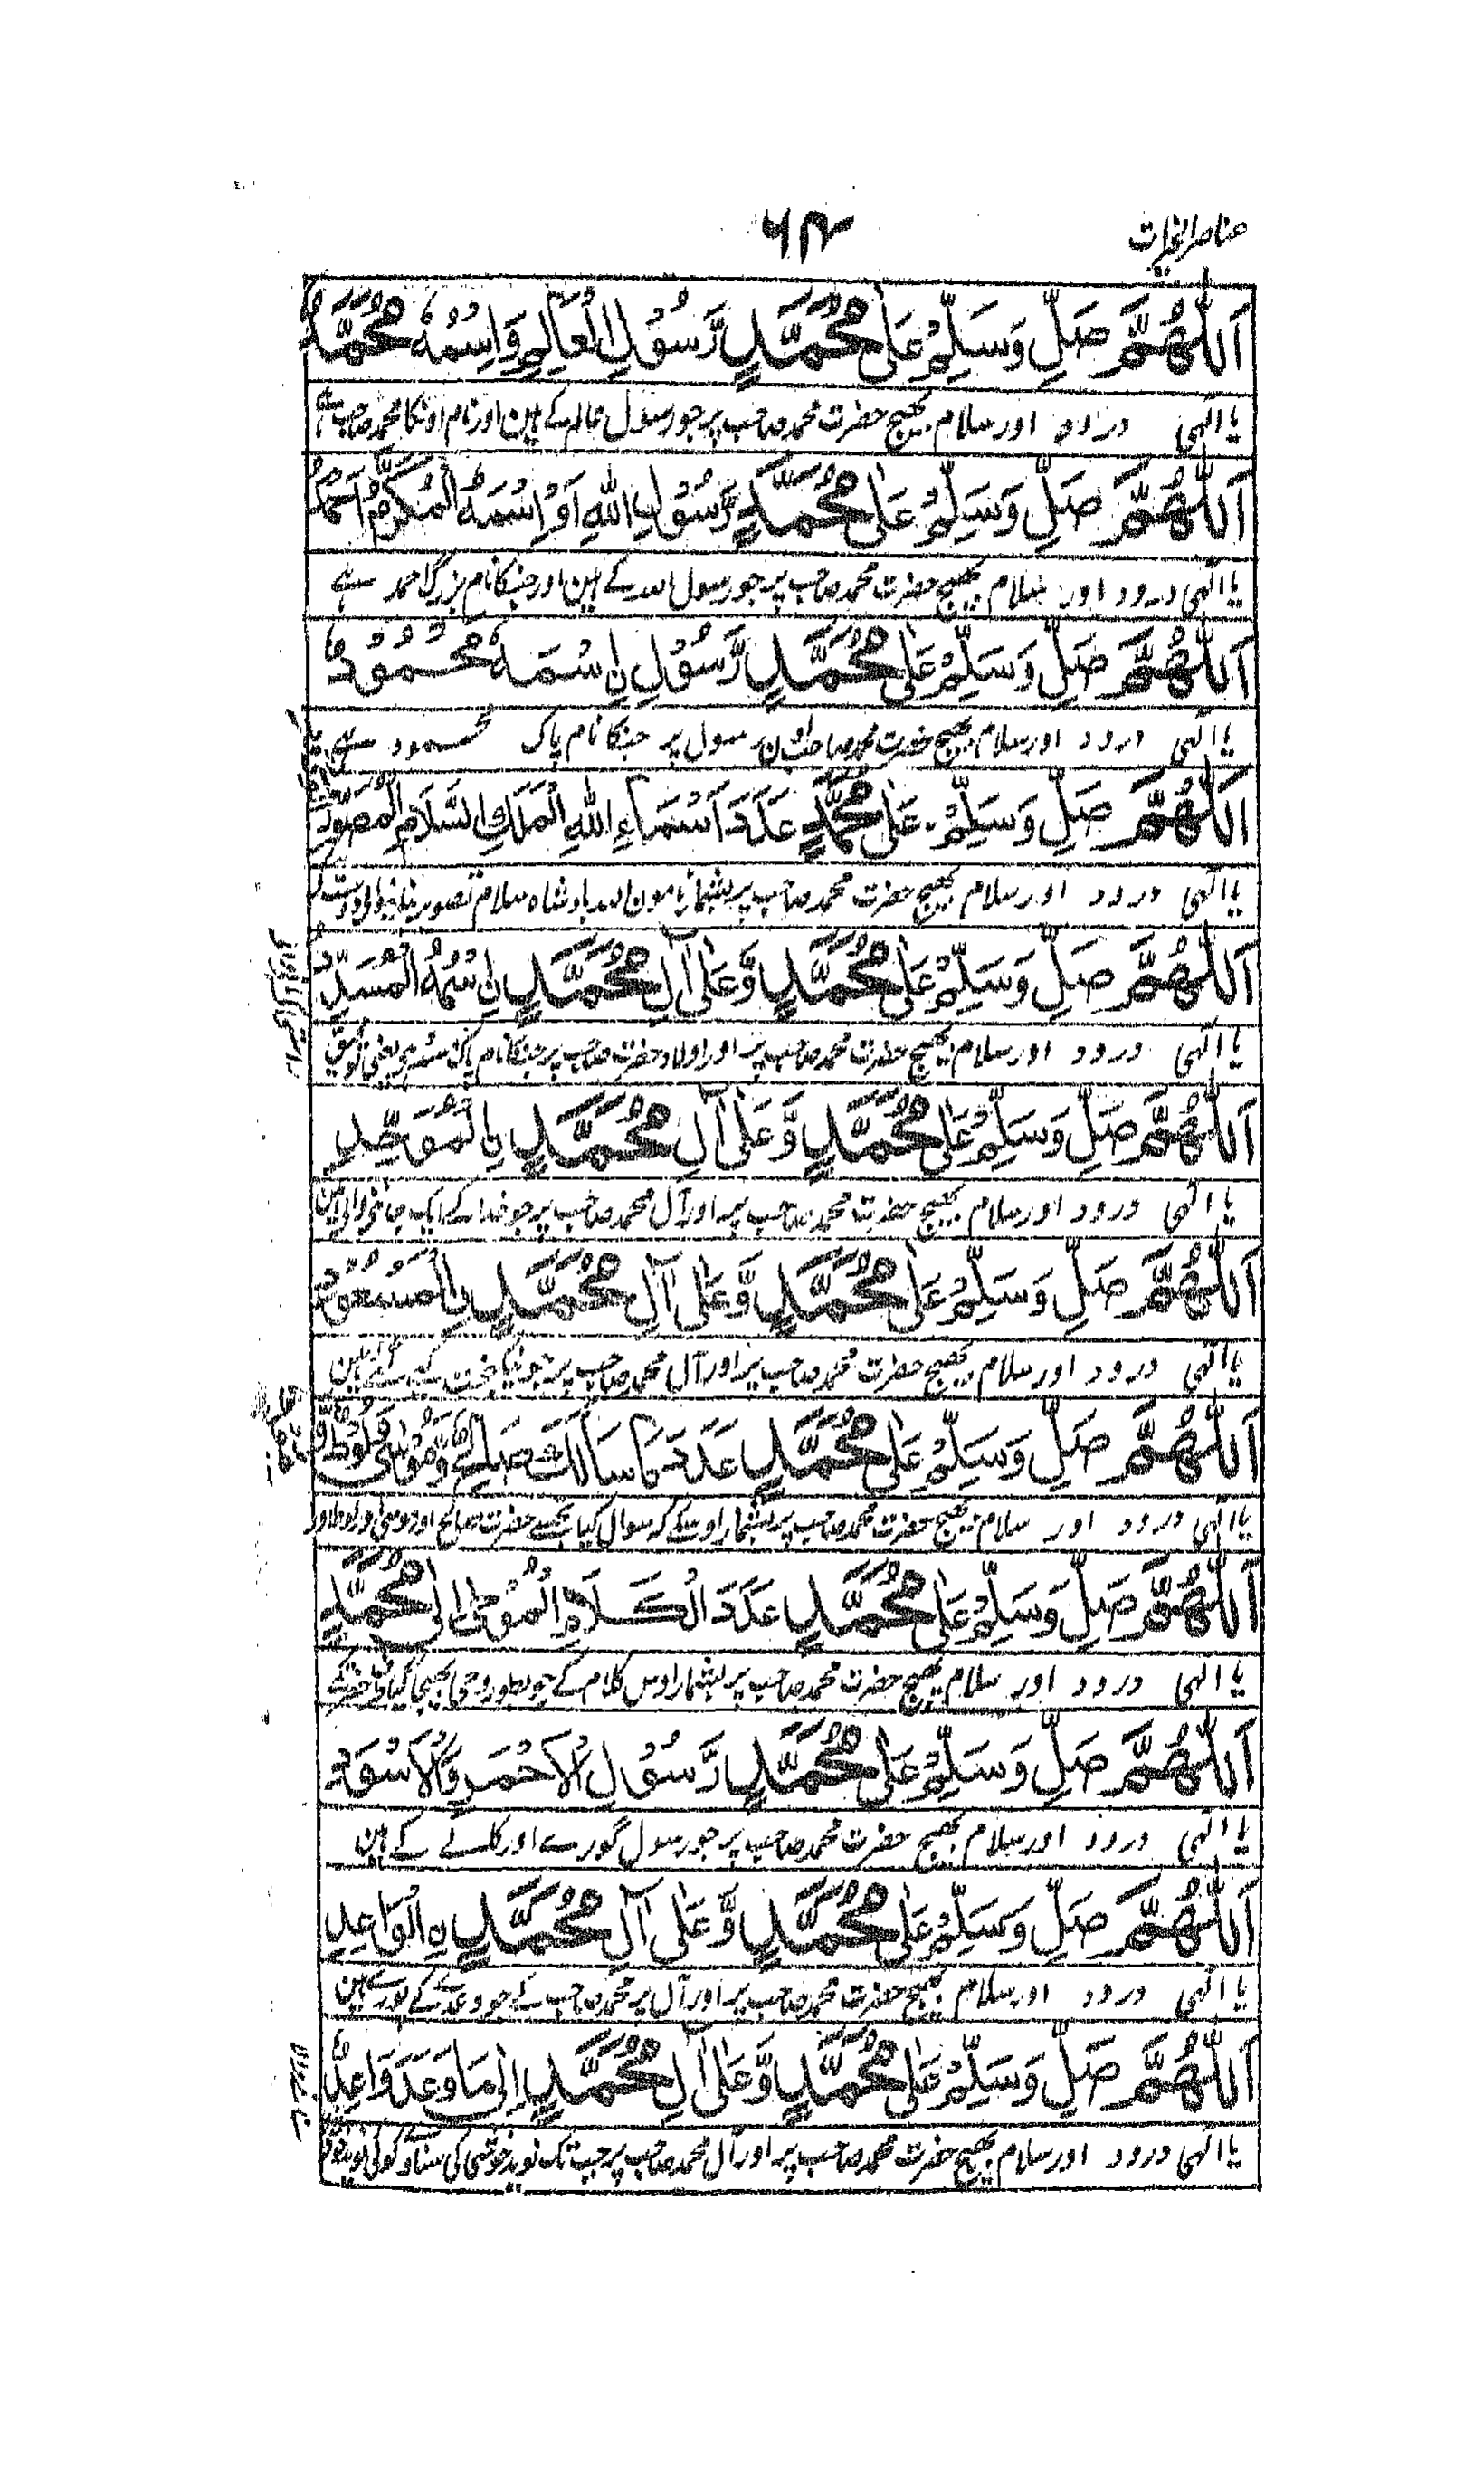 عناصر الخیرات
۶۴
اَللّٰهُمَّ صَلِّ وَسَلِّمْ عَلٰى مُحَمَّدٍ رَّسُوْلِ الْعَالَمِ وَاِسْمُهٗ مُحَمَّدٌ
یا الٰہی درود اور سلام بھیج حضرت محمد صاحب پر جو رسول عالم کے ہین اور نام اونکا محمد صاحب ہے
اَللّٰهُمَّ صَلِّ وَسَلِّمْ عَلٰى مُحَمَّدٍ رَّسُوْلِ اللّٰهِ اَوْ اِسْمَهُ الْمُكَرَّمُ اَحْمَدُ
یا الٰہی درود اور سلام بھیج حضرت محمد صاحب پر جو رسول اللہ کے ہین اور جنکا نام بزرگ احمد ہے
اَللّٰهُمَّ صَلِّ وَسَلِّمْ عَلٰى مُحَمَّدٍ رَّسُوْلِ نِ اسْمَهٗ مَحْمُوْدٌ
یا الٰہی درود اور سلام بھیج حضرت محمد صاحب اون رسول پر جنکا نام پاک محمود ہے
اَللّٰهُمَّ صَلِّ وَسَلِّمْ عَلٰى مُحَمَّدٍ عَدَدَ اَسْمَاءِ اللّٰهِ الْمَلِكِ السَّلَامِ الْمُصَوِّرِ
یا الٰہی درود اور سلام بھیج حضرت محمد صاحب پر بشمار نامون اللہ بادشاہ سلام تصویر بنانیوالی
اَللّٰهُمَّ صَلِّ وَسَلِّمْ عَلٰى مُحَمَّدٍ وَّعَلٰى اٰلِ مُحَمَّدٍ نِ اسْمُهُ الْمُسَدَّدُ
یا الٰہی درود اور سلام بھیج حضرت محمد صاحب پر اور اولاد حضرت صاحب پر جنکا نام پاک مسدد ہے یعنی توفیق
اَللّٰهُمَّ صَلِّ وَسَلِّمْ عَلٰى مُحَمَّدٍ وَّعَلٰى اٰلِ مُحَمَّدٍ نِ الْمُوَحِّدِ
یا الٰہی درود اور سلام بھیج حضرت محمد صاحب پر اور آل محمد صاحب پر جو خدا کے ایک جاننے والے ہین
اَللّٰهُمَّ صَلِّ وَسَلِّمْ عَلٰى مُحَمَّدٍ وَّعَلٰى اٰلِ مُحَمَّدٍ نِ الْمَسْعُوْدِ
یا الٰہی درود اور سلام بھیج حضرت محمد صاحب پر اور آل محمد صاحب پر جو نیکبخت کیے گئے ہین
اَللّٰهُمَّ صَلِّ وَسَلِّمْ عَلٰى مُحَمَّدٍ عَدَدَ مَا سَاَلَكَ صَالِحٌ وَّمُوْسٰى وَلُوْطٌ وَّ
یا الٰہی درود اور سلام بھیج حضرت محمد صاحب پر بشمار اوسکے کہ سوال کیا تجھسے حضرت صالح اور موسی اور لوط اور
اَللّٰهُمَّ صَلِّ وَسَلِّمْ عَلٰى مُحَمَّدٍ عَدَدَ الْكَلَامِ الْمُوْحٰى اِلٰى مُحَمَّدٍ
یا الٰہی درود اور سلام بھیج حضرت محمد صاحب پر بشمار اوس کلام کے جو بطور وحی بھیجا گیا
اَللّٰهُمَّ صَلِّ وَسَلِّمْ عَلٰى مُحَمَّدٍ رَّسُوْلِ الْاَحْمَرِ وَالْاَسْوَدِ
یا الٰہی درود اور سلام بھیج حضرت محمد صاحب پر جو رسول گورے اور کالے کے ہین
اَللّٰهُمَّ صَلِّ وَسَلِّمْ عَلٰى مُحَمَّدٍ وَّعَلٰى اٰلِ مُحَمَّدٍ نِ الْوَاعِدِ
یا الٰہی درود اور سلام بھیج حضرت محمد صاحب پر اور آل پر محمد صاحب کے جو وعدے کے پورے ہین
اَللّٰهُمَّ صَلِّ وَسَلِّمْ عَلٰى مُحَمَّدٍ وَّعَلٰى اٰلِ مُحَمَّدٍ اِلٰى مَا وَعَدَ وَاعِدٌ
یا الٰہی درود اور سلام بھیج حضرت محمد صاحب پر اور آل محمد صاحب پر جب تک نوید خوشی کی سناوے کوئی